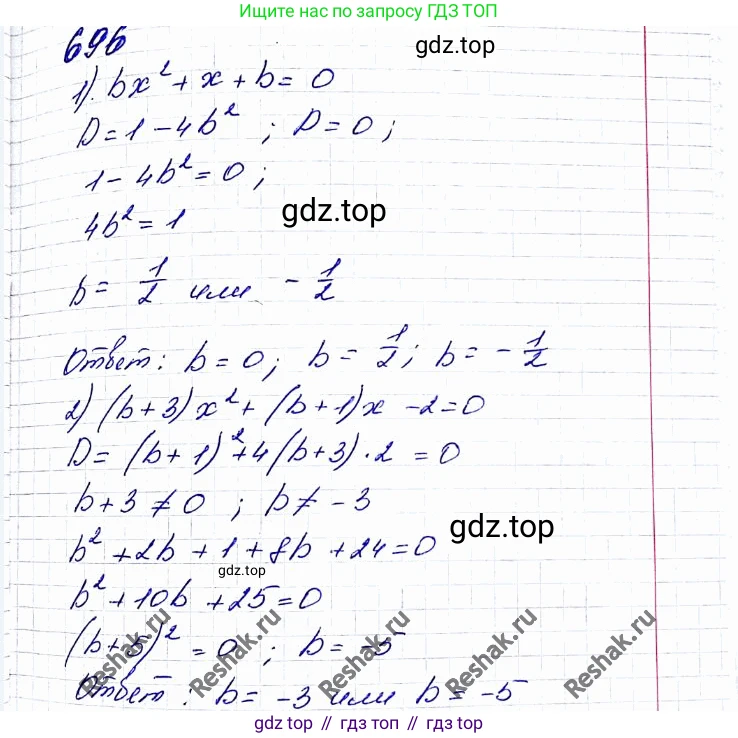 Ищите нас по запросу ГДЗ ТОП
696
gdz.top
1). bx² + x + b = 0
D = 1 - 4b² ; D = 0 ;
1 - 4b² = 0 ;
gdz.top
4b² = 1
b = 1/2 или - 1/2
Ответ: b = 0; b = 1/2; b = - 1/2
2) (b + 3)x² + (b + 1)x - 2 = 0
D = (b + 1)² + 4(b + 3) · 2 = 0
b + 3 ≠ 0 ; b ≠ - 3
gdz.top
b² + 2b + 1 + 8b + 24 = 0
gdz.top
b² + 10b + 25 = 0
(b + 5)² = 0 ; b = - 5
Reshak.ru Reshak.ru Reshak.ru Reshak.ru Reshak.ru
Ответ : b = - 3 или b = - 5
gdz top // гдз топ // gdz.top // гдз top